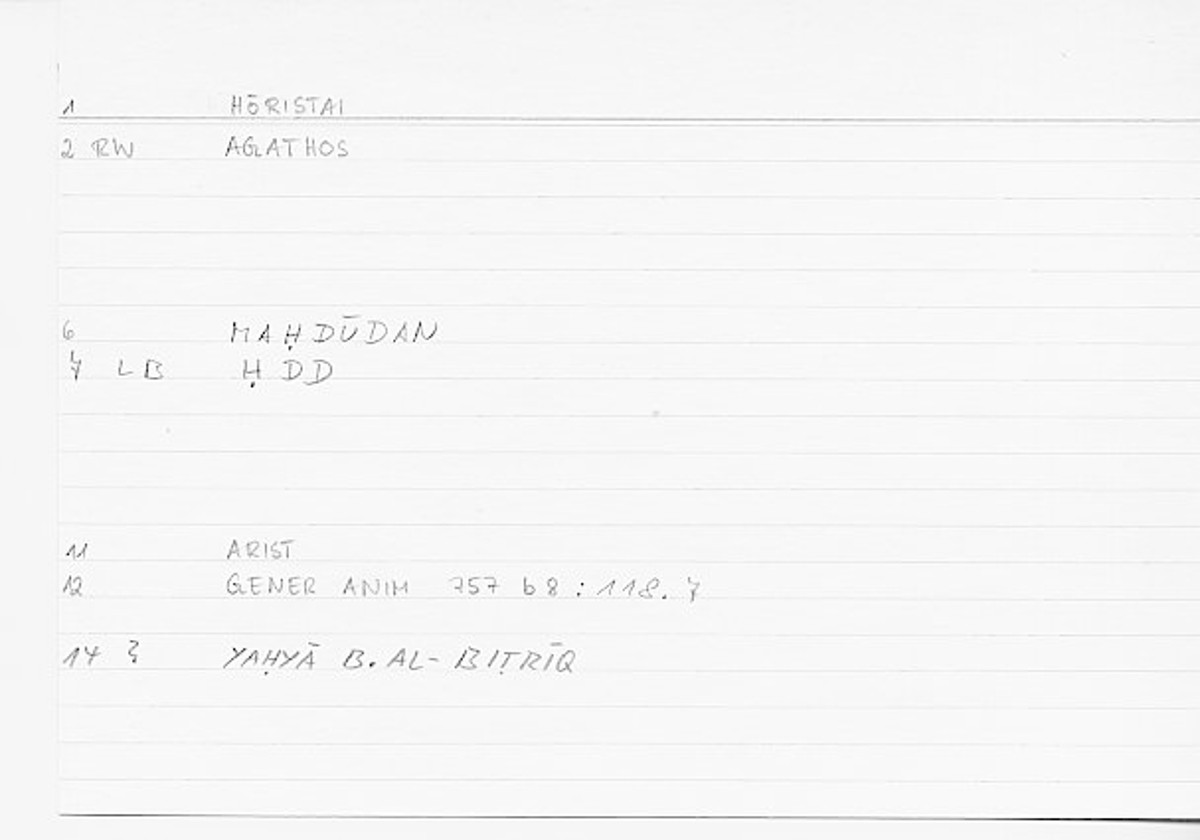 1 HŌRISTAI
2 RW AGATHOS
6 MAḤDŪDAN
7 LB ḤDD
11 ARIST
12 GENER ANIM 757 b 8 : 118. 7
14 3 YAḤYĀ B. AL-BIṬRĪQ